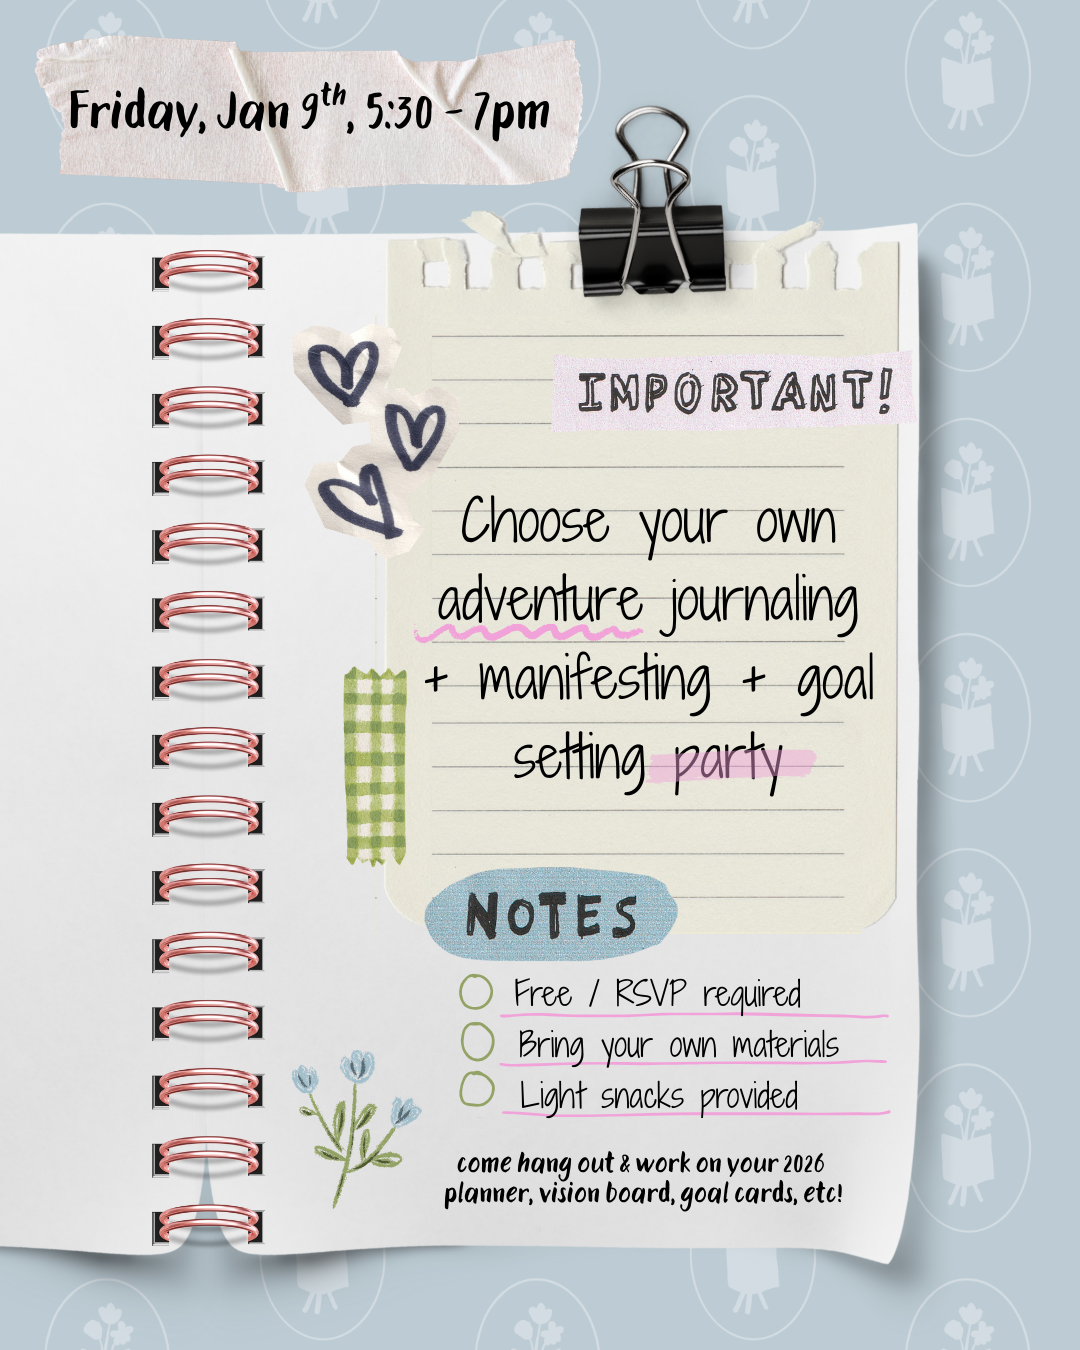 Friday, Jan 9th, 5:30 - 7pm
IMPORTANT!
Choose your own
adventure journaling
+ manifesting + goal
setting party
NOTES
Free / RSVP required
Bring your own materials
Light snacks provided
come hang out & work on your 2026
planner, vision board, goal cards, etc!